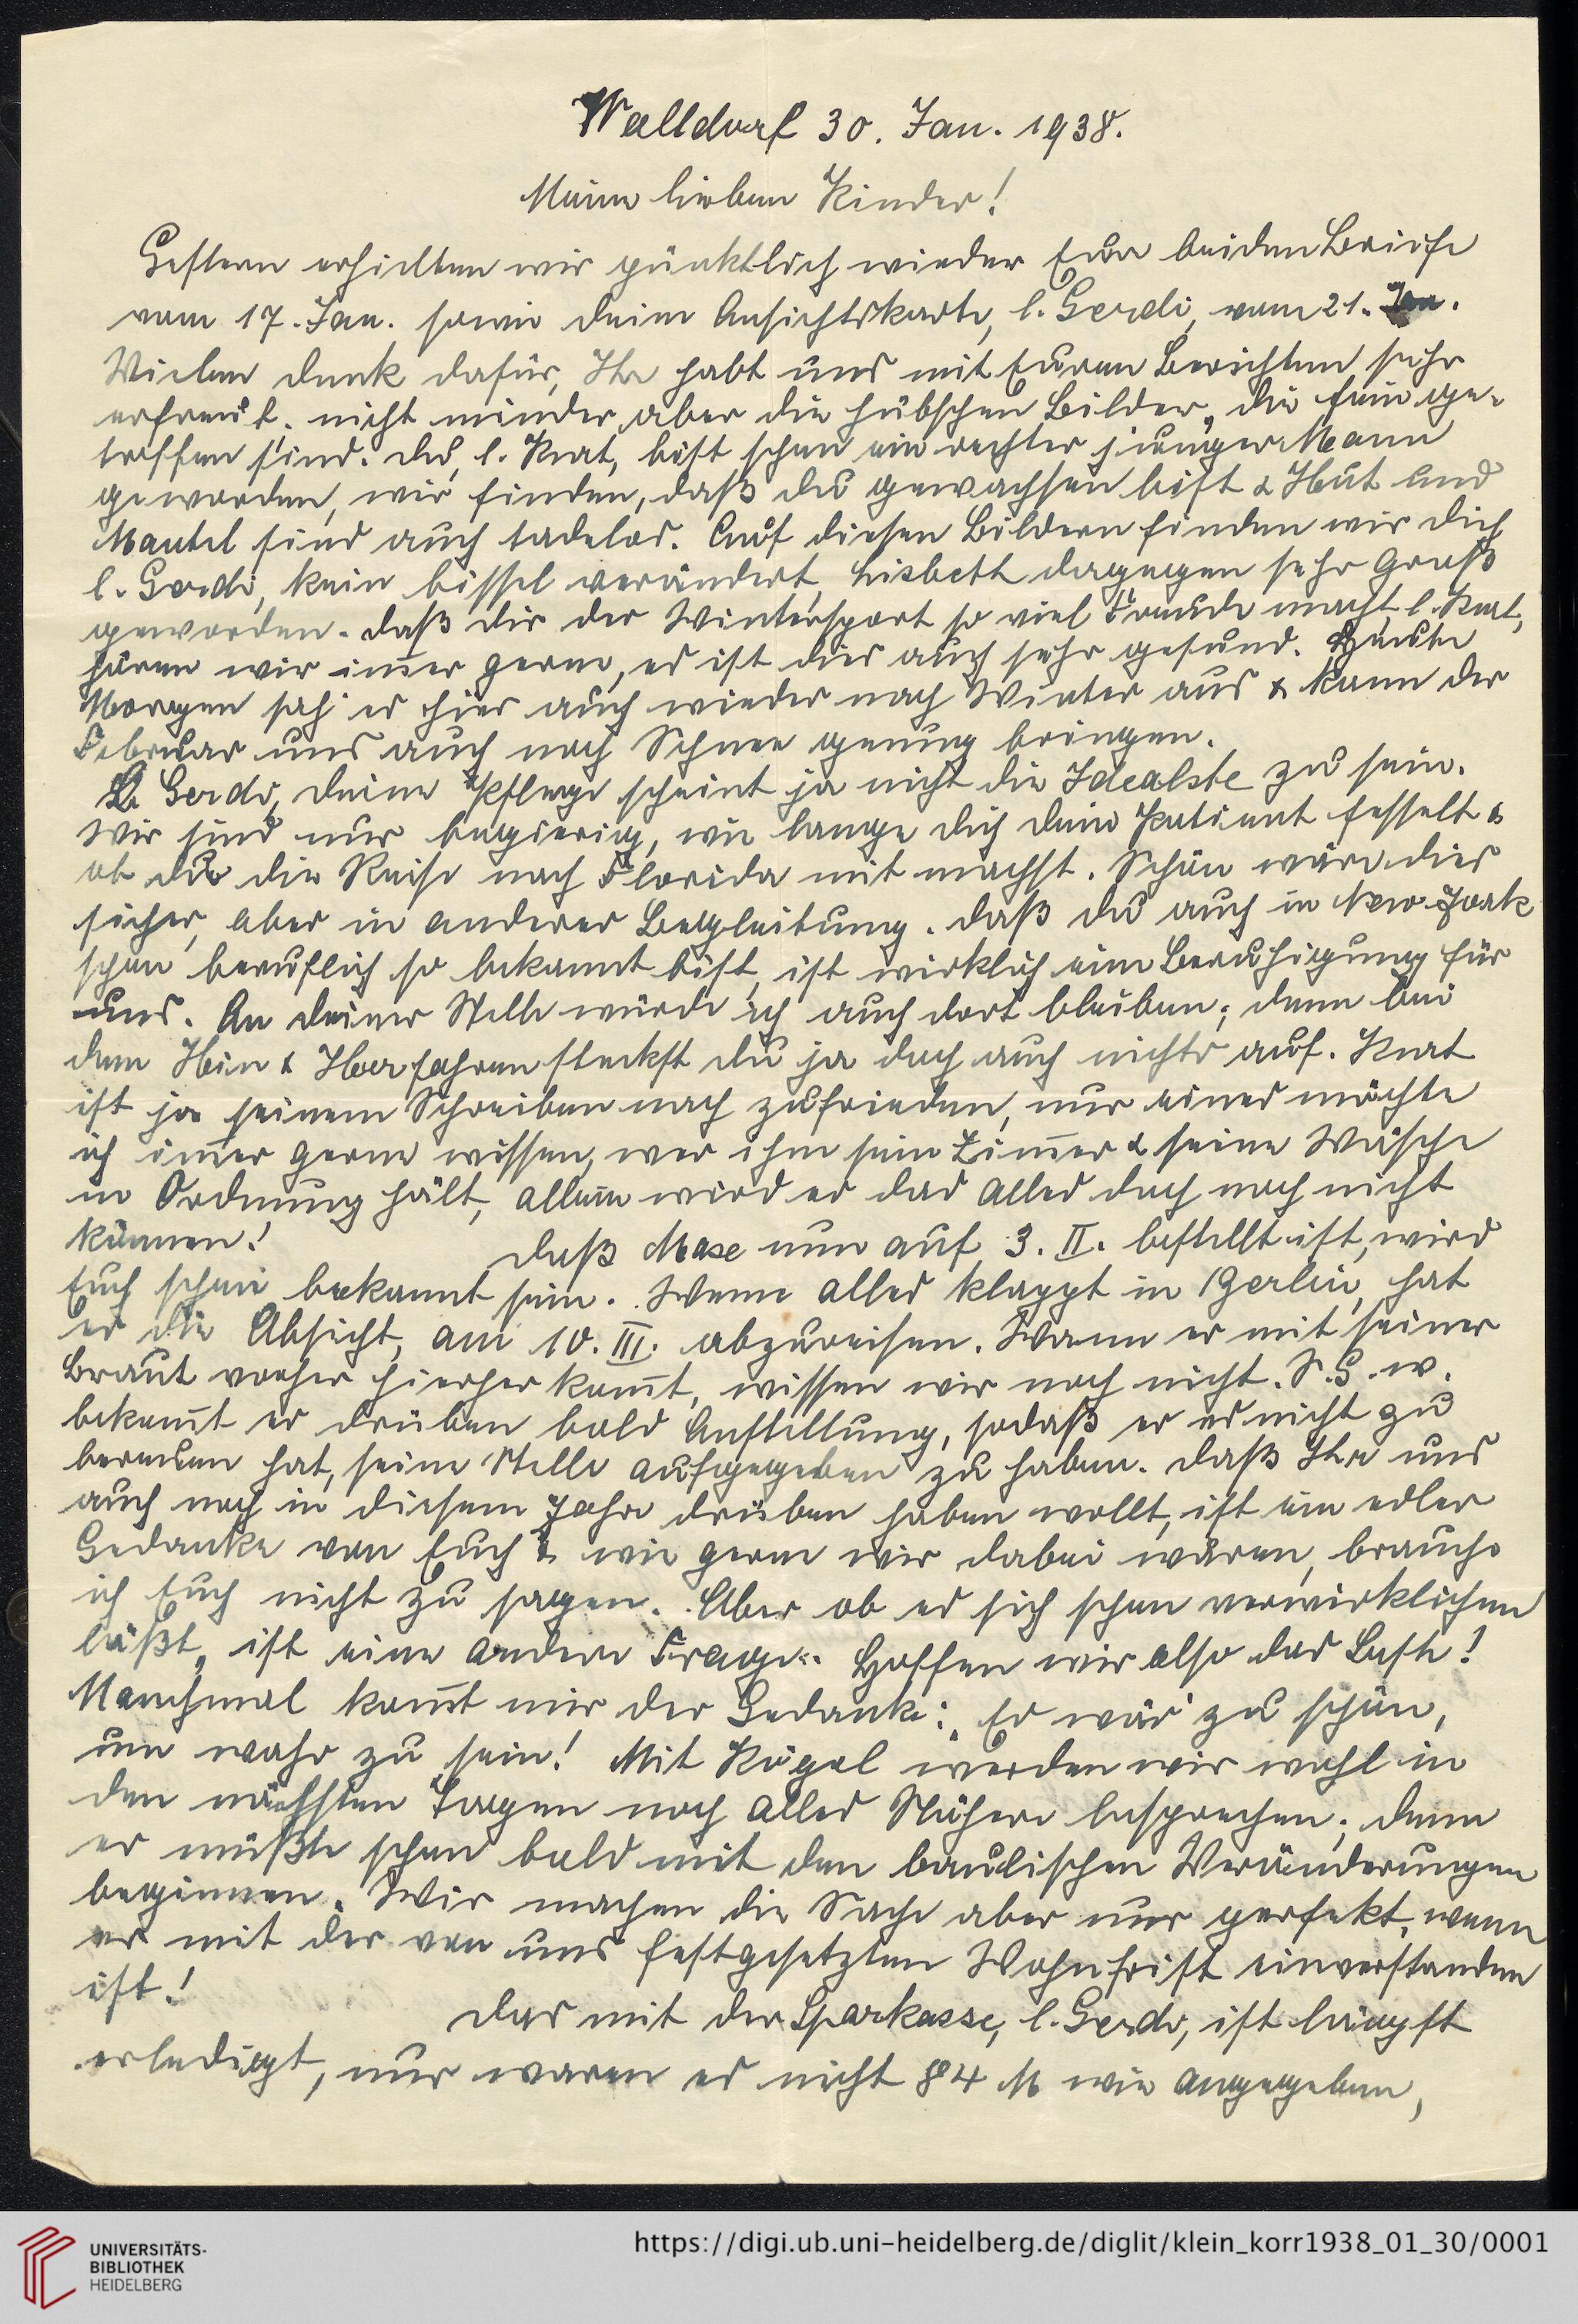 Walldorf 30. Jan. 1938.
Meine lieben Kinder!
Gestern erhielten wir pünktlich wieder Eure beiden Briefe
vom 17. Jan. sowie deine Ansichtskarte, l. Gerdi, vom 21. Jan.
Vielen Dank dafür, Ihr habt uns mit Euren Berichten sehr
erfreut, nicht minder aber die hübschen Bilder, die fein ge-
troffen sind. Du, l. Kurt, bist schon ein rechter junger Mann
geworden, wir finden, daß du gewachsen bist & Hut und
Mantel sind auch tadelos. Auf diesen Bildern finden wir dich
l. Gerdi, kein bissel verändert, Lisbeth dagegen sehr groß
geworden. Daß dir der Wintersport so viel Freude macht, l. Kurt,
hören wir im̅er gerne, es ist dies auch sehr gesund. Heute
Morgen sah es hier auch wieder nach Winter aus & kann der
Februar uns auch noch Schnee genug bringen.
L. Gerdi, deine Pflege scheint ja nicht die Idealste zu sein.
Wir sind nur begierig, wie lange dich dein Patient fesselt &
ob du die Reise nach Florida mit machst. Schön wäre dies
sicher, aber in anderer Begleitung. Daß du auch in New-York
schon beruflich so bekannt bist, ist wirklich eine Beruhigung für
uns. An deiner Stelle würde ich auch dort bleiben; denn bei
dem Hin & Herfahren steckst du ja doch auch nichts auf. Kurt
ist ja seinem Schreiben nach zufrieden, nur eines möchte
ich im̅er gerne wissen, wer ihm sein Zim̅er & seine Wäsche
in Ordnung hält, allein wird er das alles doch noch nicht
können!
Daß Maxe nun auf 3. II. bestellt ist, wird
Euch schon bekannt sein. Wenn alles klappt in Berlin, hat
er die Absicht, am 10. III. abzureisen. Wann er mit seiner
Braut vorher hierher kom̅t, wissen wir noch nicht. S. G. w.
bekom̅t er drüben bald Anstellung, sodaß er es nicht zu
bereuen hat, seine Stelle aufgegeben zu haben. Daß Ihr uns
auch noch in diesem Jahre drüben haben wollt, ist ein edler
Gedanke von Euch & wie gerne wir dabei wären, brauche
ich Euch nicht zu sagen. Aber ob es sich schon verwirklichen
läßt, ist eine andere Frage. Hoffen wir also das Beste!
Manchmal kom̅t mir der Gedanke: Es wär' zu schön,
um wahr zu sein! Mit Kögel werden wir wohl in
den nächsten Tagen noch alles Nähere besprechen; denn
er müßte schon bald mit den baulischen Veränderungen
beginnen. Wir machen die Sache aber nur perfekt, wenn
er mit der von uns festgesetzten Wohnfrist einverstanden
ist!
Das mit der Sparkasse, l. Gerdi, ist längst
erledigt, nur waren es nicht 84 M wie angegeben,
UNIVERSITÄTS-
BIBLIOTHEK
HEIDELBERG
https://digi.ub.uni-heidelberg.de/diglit/klein_korr1938_01_30/0001